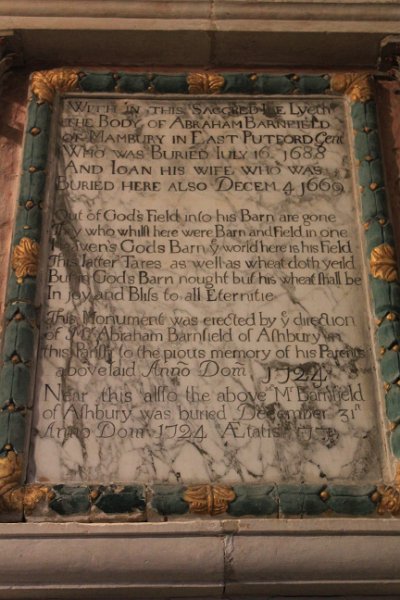 With in this Sacored Ile Lyeth
the Body of Abraham Barnfield
of Mambury in East Putford Gent
Who was Buried Iuly 16. 1688
And Ioan his wife who was
Buried here also Decem 4 1660
Out of God's Field into his Barn are gone
They who whilst here were Barn and Field in one
Heaven's Gods Barn ye world here is his Field
This latter Tares as well as wheat doth yeild
But in God's Barn nought but his wheat shall be
In joy and Bliss to all Eternitie
This Monument was erected by ye direction
of Mr Abraham Barnfield of Ashbury in
this Parish to the pious memory of his Parents
abovesaid Anno Dom 1724.
Near this allso the above Mr Barnfield
of Ashbury was buried December 31st
Anno Dom 1724 Ætatis